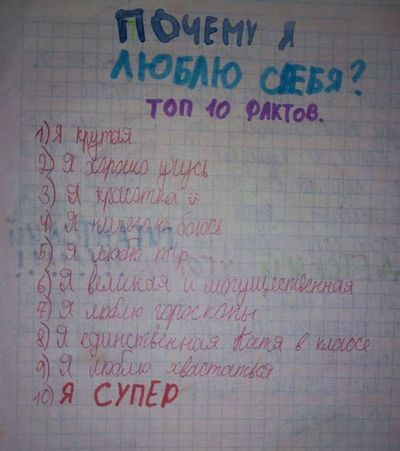 ПОЧЕМУ Я
ЛЮБЛЮ СЕБЯ?
ТОП 10 ФАКТОВ.
1) Я крутая
2) Я хорошо учусь
3) Я красотка
4) Я ничего не боюсь
5) Я
6) Я великая и могущественная
7) Я люблю гороскопы
8) Я единственная Катя в классе
9) Я люблю хвастаться.
10) Я СУПЕР